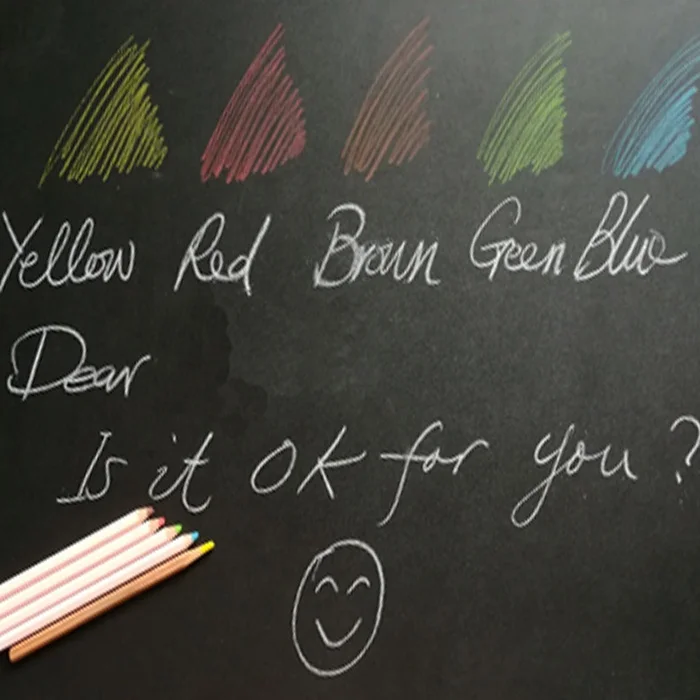 Yellow Red Brown Green Blue
Dear
Is it OK for you ?